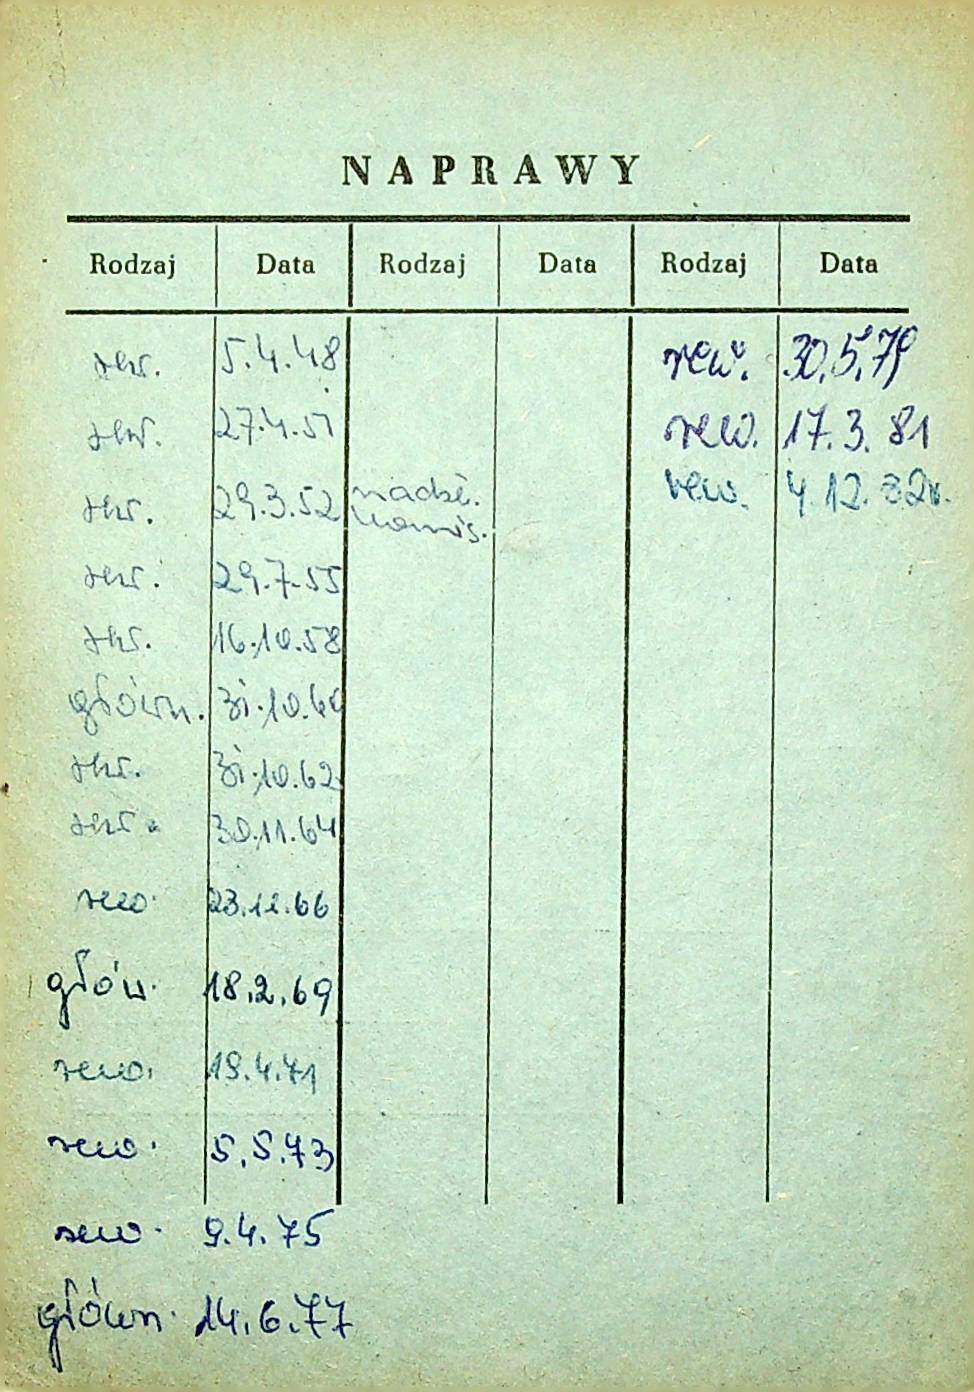 NAPRAWY
Rodzaj Data Rodzaj Data Rodzaj Data
śr. 5.4.48
śr. 27.4.51
śr. 29.3.52 nadzw.
śr. 29.7.55
śr. 16.10.58
główn. 31.10.60
śr. 31.10.62
śr. 30.11.64
rew. 23.12.66
głów. 18.2.69
rew. 19.4.71
rew. 5.5.73
rew. 9.4.75
główn. 14.6.77
rew. 30.5.79
rew. 17.3.81
rew. 4.12.82r.